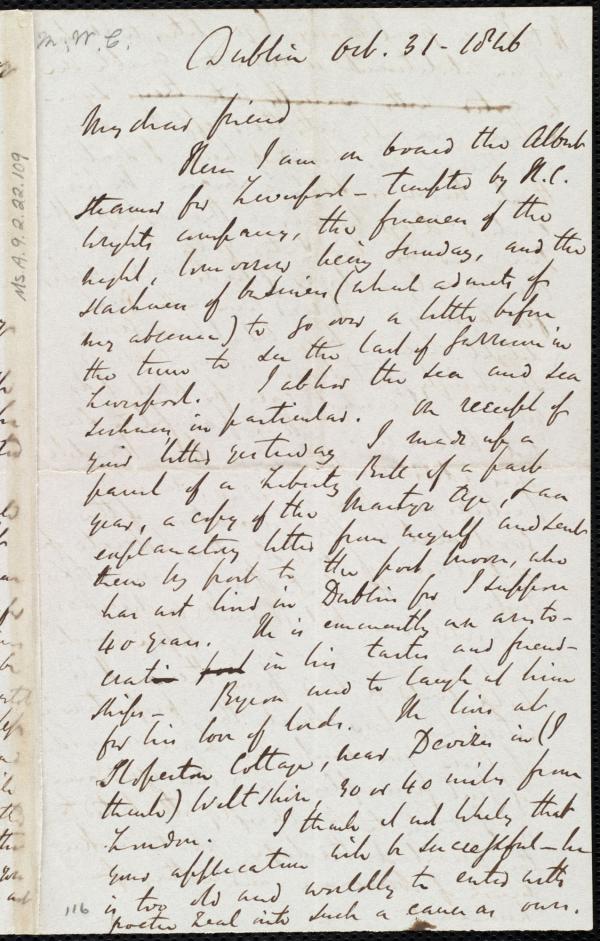 M. W. C.
Dublin Oct. 31 - 1846
My dear friend
Here I am on board the Albert
steamer for Liverpool - tempted by R.C.
Wright's company, the fineness of the
night, tomorrow being Sunday, and the
slackness of business (which admits of
my absence) to go over a little before
the time to see the last of Garrison in
Liverpool. I abhor the sea and sea
sickness in particular. On receipt of
your letter yesterday I made up a
parcel of a Liberty Bell of a past
year, a copy of the Martyr Age, & an
explanatory letter from myself and sent
them by post to the poet Moore, who
has not lived in Dublin for I suppose
40 years. He is eminently an aristo-
cratic in his tastes and friend-
ships - Byron used to laugh at him
for his love of lords. He lives at
Sloperton Cottage, near Devizes in (I
think) Wiltshire, 30 or 40 miles from
London. I think it not likely that
your application will be successful - he
is too old and worldly to enter with
poetic zeal into such a cause as ours.
Ms A.9.2.22.109
116